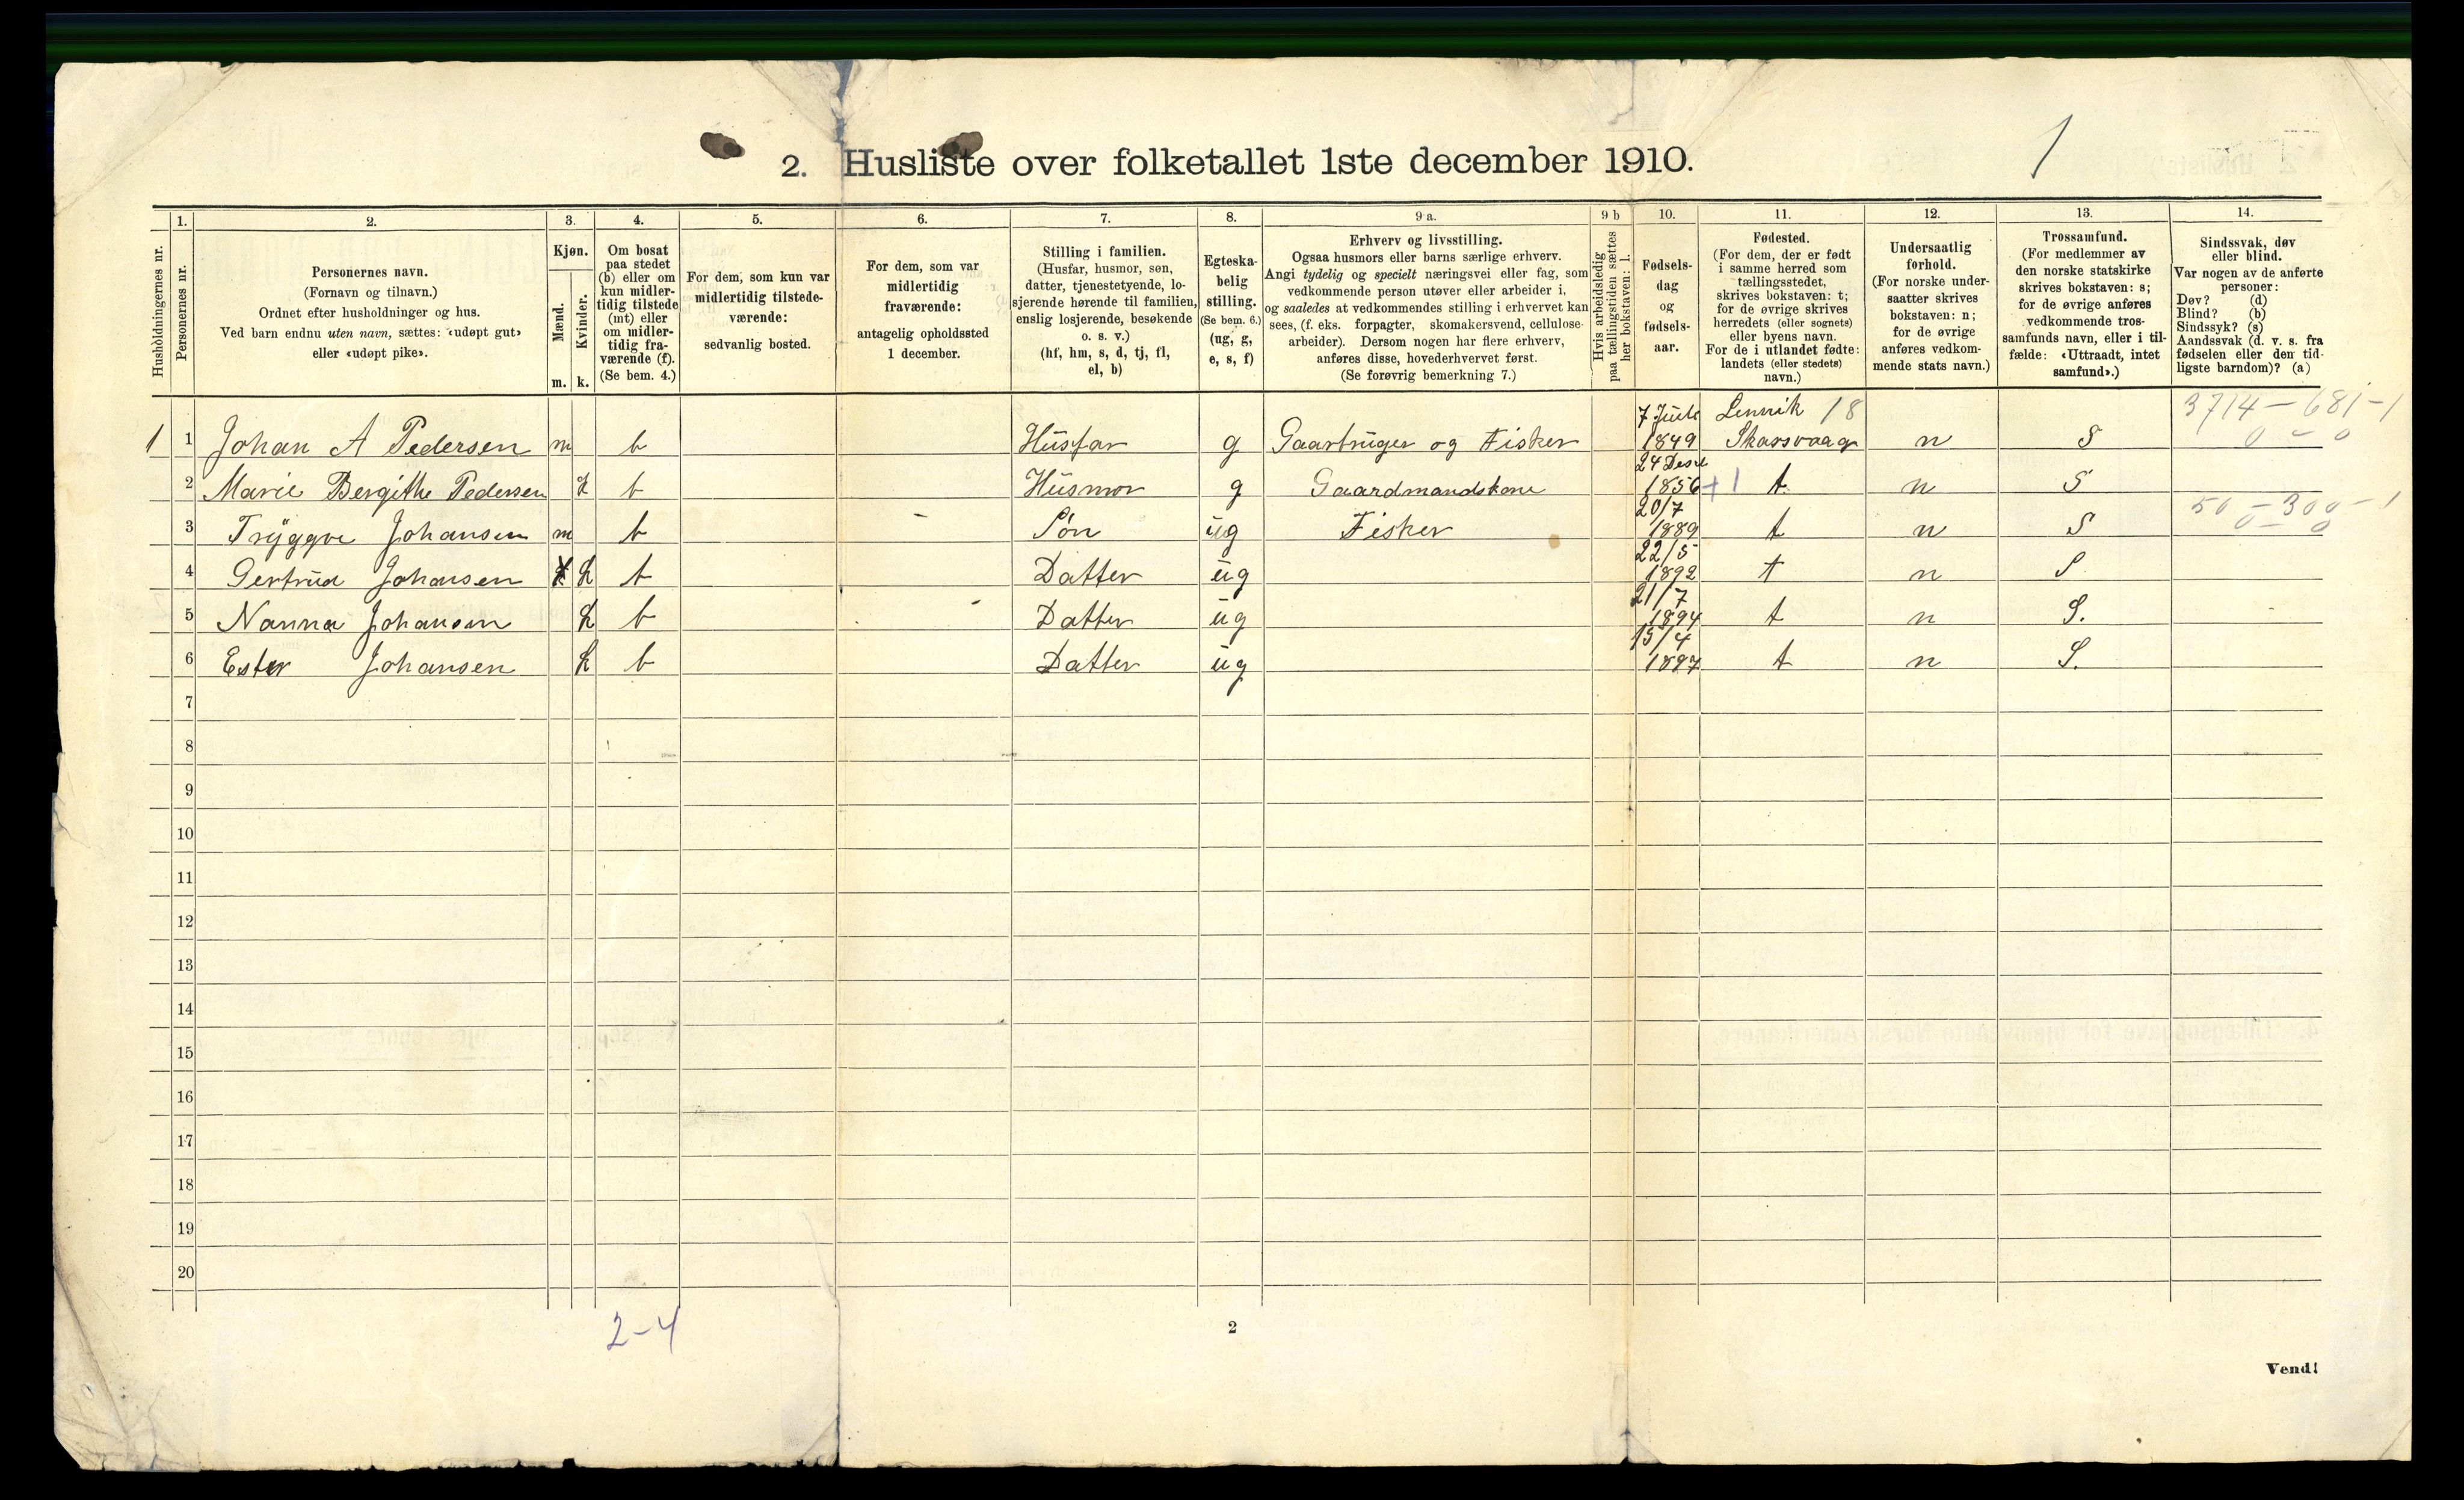 1
2. Husliste over folketallet 1ste december 1910.
1. 2. 3. 4. 5. 6. 7. 8. 9 a. 9 b 10. 11. 12. 13. 14.
Husholdningernes nr.
Personernes nr.
Personernes navn.
(Fornavn og tilnavn.)
Ordnet efter husholdninger og hus.
Ved barn endnu uten navn, sættes: «udøpt gut»
eller «udøpt pike».
Kjøn.
Mænd.
Kvinder.
m. k.
Om bosat
paa stedet
(b) eller om
kun midler-
tidig tilstede
(mt) eller
om midler-
tidig fra-
værende (f).
(Se bem. 4.)
For dem, som kun var
midlertidig tilstede-
værende:
sedvanlig bosted.
For dem, som var
midlertidig
fraværende:
antagelig opholdssted
1 december.
Stilling i familien.
(Husfar, husmor, søn,
datter, tjenestetyende, lo-
sjerende hørende til familien,
enslig losjerende, besøkende
o. s. v.)
(hf, hm, s, d, tj, fl,
el, b)
Egteska-
belig
stilling.
(Se bem. 6.)
(ug, g,
e, s, f)
Erhverv og livsstilling.
Ogsaa husmors eller barns særlige erhverv.
Angi tydelig og specielt næringsvei eller fag, som
vedkommende person utøver eller arbeider i,
og saaledes at vedkommendes stilling i erhvervet kan
sees, (f. eks. forpagter, skomakersvend, cellulose-
arbeider). Dersom nogen har flere erhverv,
anføres disse, hovederhvervet først.
(Se forøvrig bemerkning 7.)
Hvis arbeidsledig
paa tællingstiden sættes
her bokstaven: l.
Fødsels-
dag
og
fødsels-
aar.
Fødested.
(For dem, der er født
i samme herred som
tællingsstedet,
skrives bokstaven: t;
for de øvrige skrives
herredets (eller sognets)
eller byens navn.
For de i utlandet fødte:
landets (eller stedets)
navn.)
Undersaatlig
forhold.
(For norske under-
saatter skrives
bokstaven: n;
for de øvrige
anføres vedkom-
mende stats navn.)
Trossamfund.
(For medlemmer av
den norske statskirke
skrives bokstaven: s;
for de øvrige anføres
vedkommende tros-
samfunds navn, eller i til-
fælde: «Uttraadt, intet
samfund».)
Sindssvak, døv
eller blind.
Var nogen av de anførte
personer:
Døv? (d)
Blind? (b)
Sindssyk? (s)
Aandssvak (d. v. s. fra
fødselen eller den tid-
ligste barndom)? (a)
7 Juli 18 3714 - 681 - 1
1 1 Johan A Pedersen m b Husfar g Gaarbruger og Fisker 1849 Skarsvaag n S 0 - 0
24 Des
2 Marie Bergithe Pedersen k b Husmor g Gaardmandskone 1856 + 1 t n S
20/7 50 - 300 - 1
3 Tryggve Johansen m b Søn ug Fisker 1889 t n S 0 - 0
22/5
4 Gertrud Johansen k b Datter ug 1892 t n S
21/7
5 Nanna Johansen k b Datter ug 1894 t n S.
15/4
6 Ester Johansen k b Datter ug 1897 t n S.
7
8
9
10
11
12
13
14
15
16
17
18
19
20
2-4
2
Vend!